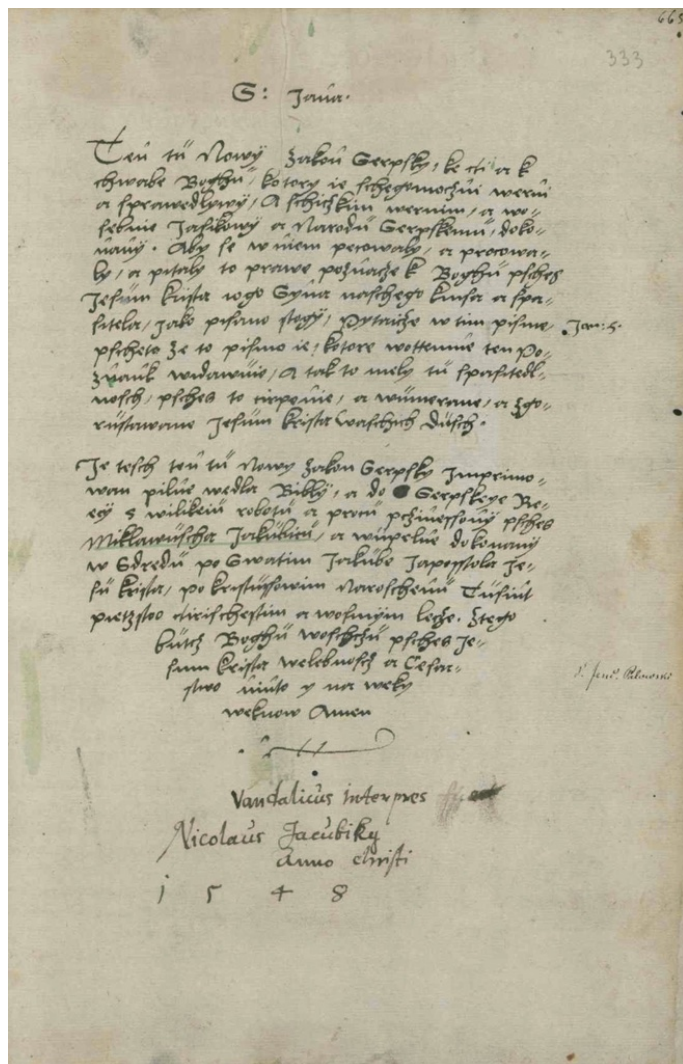 665
333
S: Jana.
Ten tü Nowÿ Zakon Serpsky, ke cti a k
chwabe Boghü, kotory ie schegomocżni werni
a sprawedlywÿ, A schiczkim wernim, a wo=
sebnie Jasikowÿ a Narodü Serpskemü, doko=
nanÿ. Aby se w niem perowaly, a procowa=
ly, a pitaly to prawe poznacze k Boghü psches
Jesüm Krista iogo Sÿna naschego knesa a spa=
sitela, Jako pisano stogÿ, Pytaicże w tim pisme, Jan: 5.
pscheto że to pismo ie, kotore wottemnie ten Po=
znank widawüie, A tak to mely tü spasitedl=
nosch, psches to cirpenie, a wümerane, a zgo=
rüstawane Jesüm Krista waschich düsch.
Je tesch ten tü Nowy Zakon Serpsky Imprimo=
wan pilne wedla Biblÿ, a do Serpskeye Re=
ecÿ z wilikeiü robotü a procü pżinessonÿ psches
Miklawüscha Jakubicü, a wüpelne dokonanÿ
w Sdredü po Swatim Jakübe Japosstola Je=
sü Krista, po Kristussowim Naroschenü Tüsint
pietzstwo ctirischestim a wosmÿm lecże. Ztego
bütcż Boghü woschcżü psches Je=
sum Krista welebnoscż a Cesar=
stwo nüto y na weky
weknow Amen
Vandalicus interpres
Nicolaus Jacubiky
Anno christi
1 5 4 8